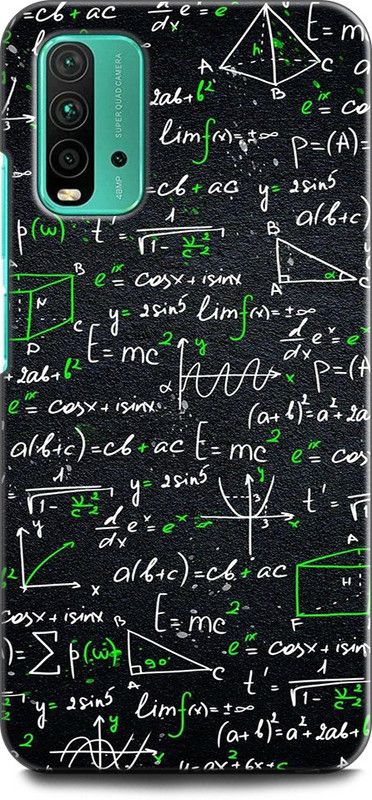 =cb+ac d/dx eˣ=eˣ E=m
SUPER QUAD CAMERA
48MP
h
A B C
2ab+b²
e^ix = co
lim f(x)=±∞
P=(A)=
=cb+ac y=2sin5
a(b+c)
p(w) t'=1/√(1-v²/c²)
B
A α C
e^ix = cosx+isinx
B
N C
D
y=2sin5 lim f(x)=±∞
E=mc² y
α x
d/dx eˣ=eˣ
+2ab+b²
P=(A
e^ix = cosx+isinx
(a+b)²=a²+2a
a(b+c)=cb+ac E=mc²
e^ix = cos
1/√(1-v²/c²) y=2sin5
y
3
3 x
t'=
d/dx eˣ=eˣ
y
x
a(b+c)=cb+ac
A
H
F
cosx+isinx
E=mc²
)=∑p(w)
B
90°
A C
e^ix = cosx+isinx
t'=1/√(1-v²/c²)
y=2sin5 lim f(x)=±∞
2
y
(a+b)²=a²+2ab+b
x